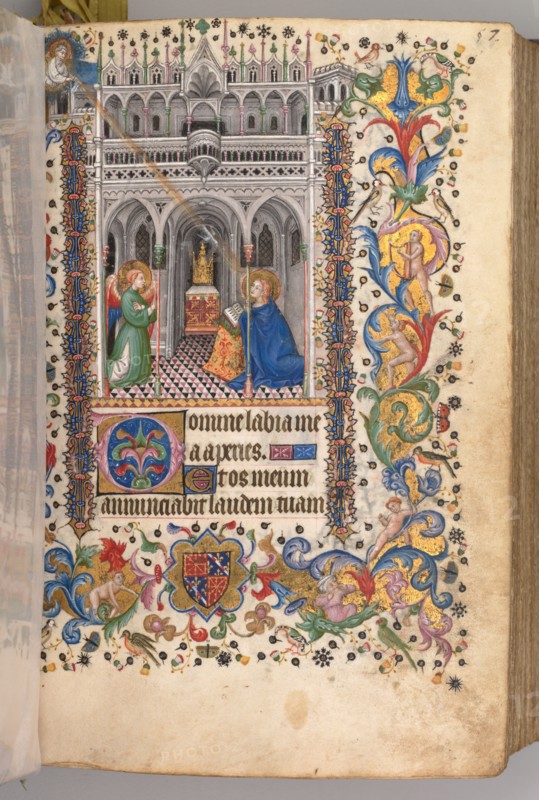 27.
Domine labia me
a aperies.
Et os meum
annunciabit laudem tuam